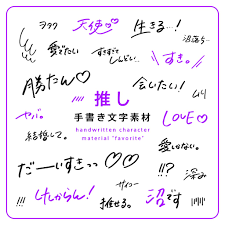 ヲタク
天使♡
生きる…!
沼落ち
愛でたい
すきすぎてしんどい
すき。
勝たん♡
会いたい!
推し
ヤバ。
手書き文字素材
LOVE♡
handwritten character
material "favorite"
結婚して。
愛しかない。
だーいすきっっ♡♡
!!?
深み
!!!
けしからん!
サイコー
推せる。
沼です